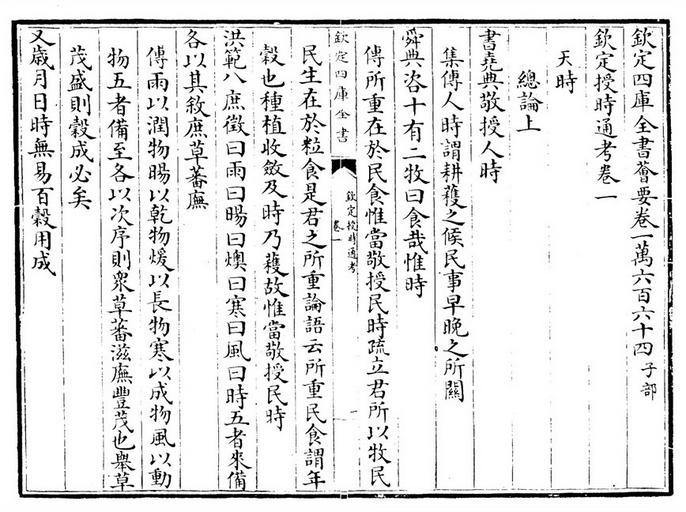 欽定四庫全書薈要卷一萬六百六十四 子部
欽定授時通考卷一
天時
總論上
書堯典敬授人時
集傳人時謂耕穫之候民事早晚之所關
舜典咨十有二牧曰食哉惟時
傳所重在於民食惟當敬授民時疏立君所以牧民
欽定四庫全書
欽定授時通考
卷一
民生在於粒食是君之所重論語云所重民食謂年
穀也種植收斂及時乃穫故惟當敬授民時
洪範八庶徵曰雨曰暘曰燠曰寒曰風曰時五者來備
各以其敘庶草蕃廡
傳雨以潤物暘以乾物煖以長物寒以成物風以動
物五者備至各以次序則衆草蕃滋廡豐茂也舉草
茂盛則穀成必矣
又歲月日時無易百穀用成